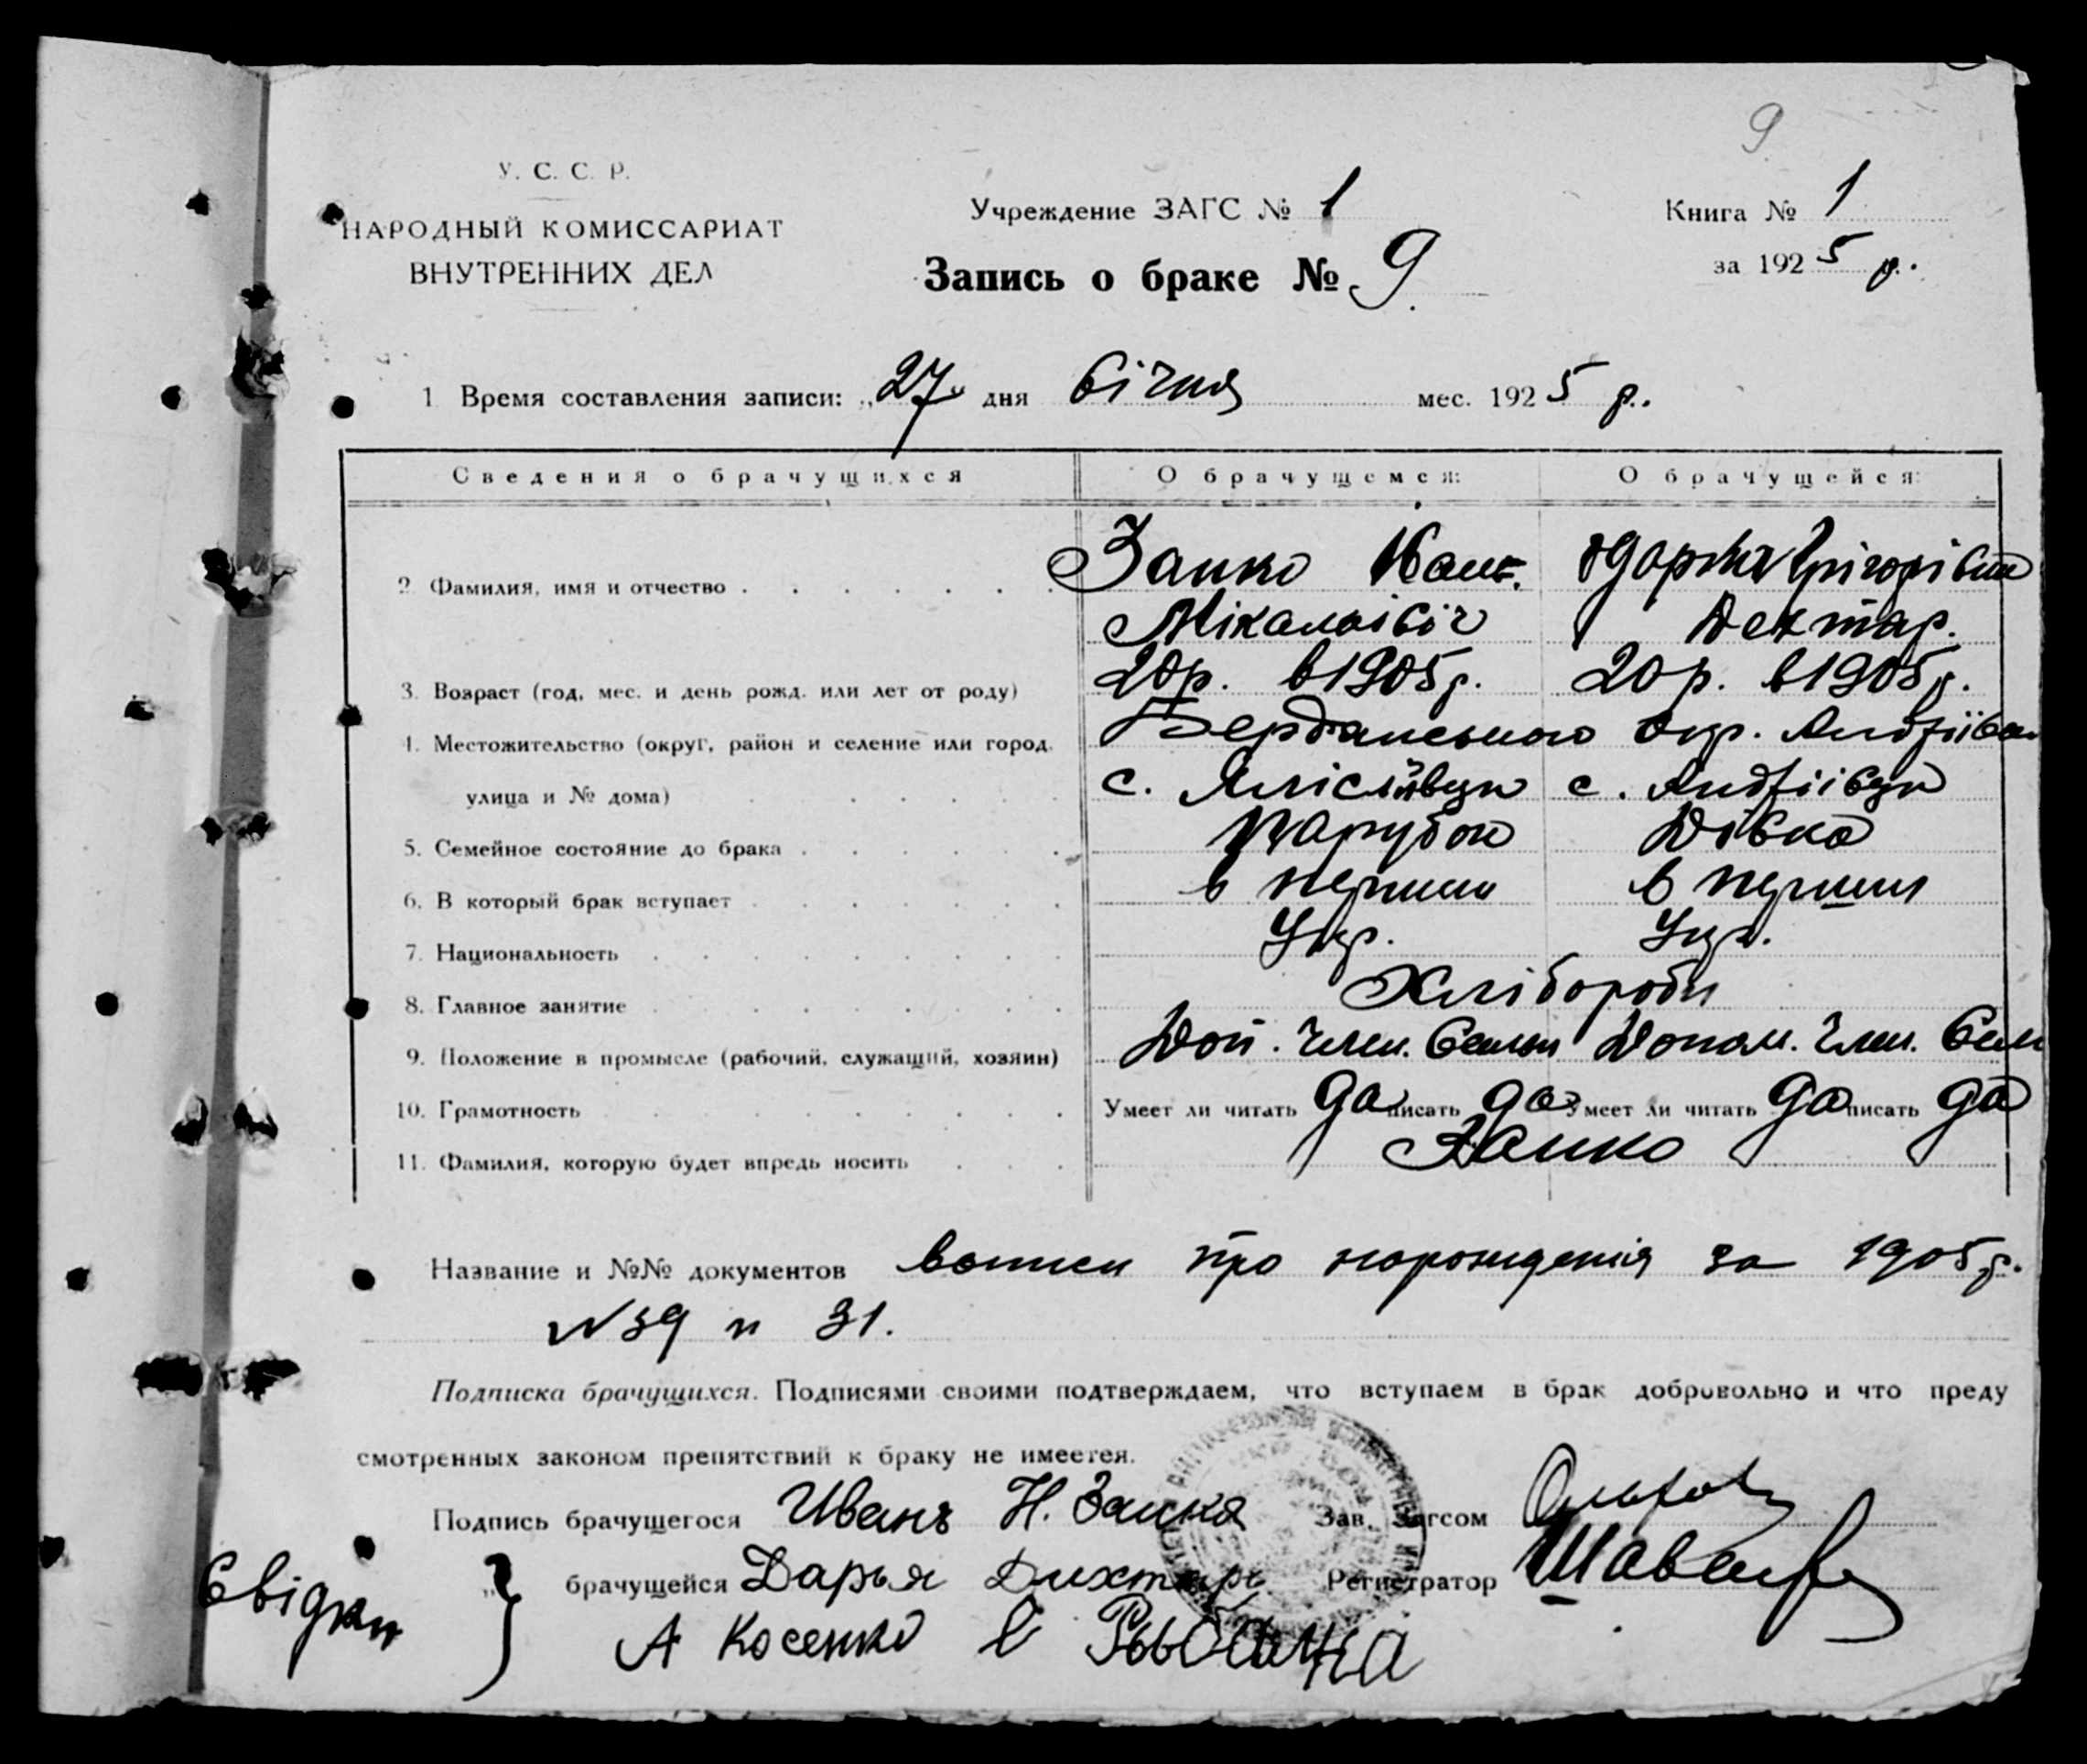 9
У. С. С. Р.
НАРОДНЫЙ КОМИССАРИАТ
ВНУТРЕННИХ ДЕЛ
Учреждение ЗАГС № 1
Запись о браке № 9.
Книга № 1
за 1925 р.
1 Время составления записи: „27" дня січня мес. 1925 р.
Сведения о брачущихся О брачущемся: О брачущейся:
2. Фамилия, имя и отчество Заико Дехтар.
3. Возраст (год, мес. и день рожд. или лет от роду) 20р. в 1905р. 20р. в 1905р.
4. Местожительство (округ, район и селение или город, Бердянського окр.
улица и № дома) с. с. Андріівци
5. Семейное состояние до брака Парубок Дівка
6. В который брак вступает в перший в перший
7. Национальность Укр. Укр.
8. Главное занятие Хлібороби
9. Положение в промысле (рабочий, служащий, хозяин) Доп. член. Допом. член.
10. Грамотность Умеет ли читать да писать да Умеет ли читать да писать да
11. Фамилия, которую будет впредь носить Заико
Название и №№ документов про нарождения за 1905р.
№39 и 31.
Подписка брачущихся. Подписями своими подтверждаем, что вступаем в брак добровольно и что преду
смотренных законом препятствий к браку не имеется.
Подпись брачущегося Иванъ Н. Заика Зав. Загсом
Свідки } „ брачущейся Дарья Дихтярь Регистратор
А Косенко